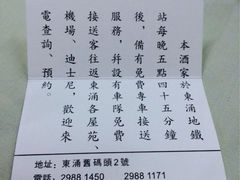 本酒家於東涌地鐵
站每晚五點四十五分鐘
後，備有免費專車接送
服務，并設有車隊免費
接送客往返東涌各屋苑、
機場、迪士尼，歡迎來
電查詢、預約。
地址：東涌舊碼頭2號
電話：2988 1450 2988 1171